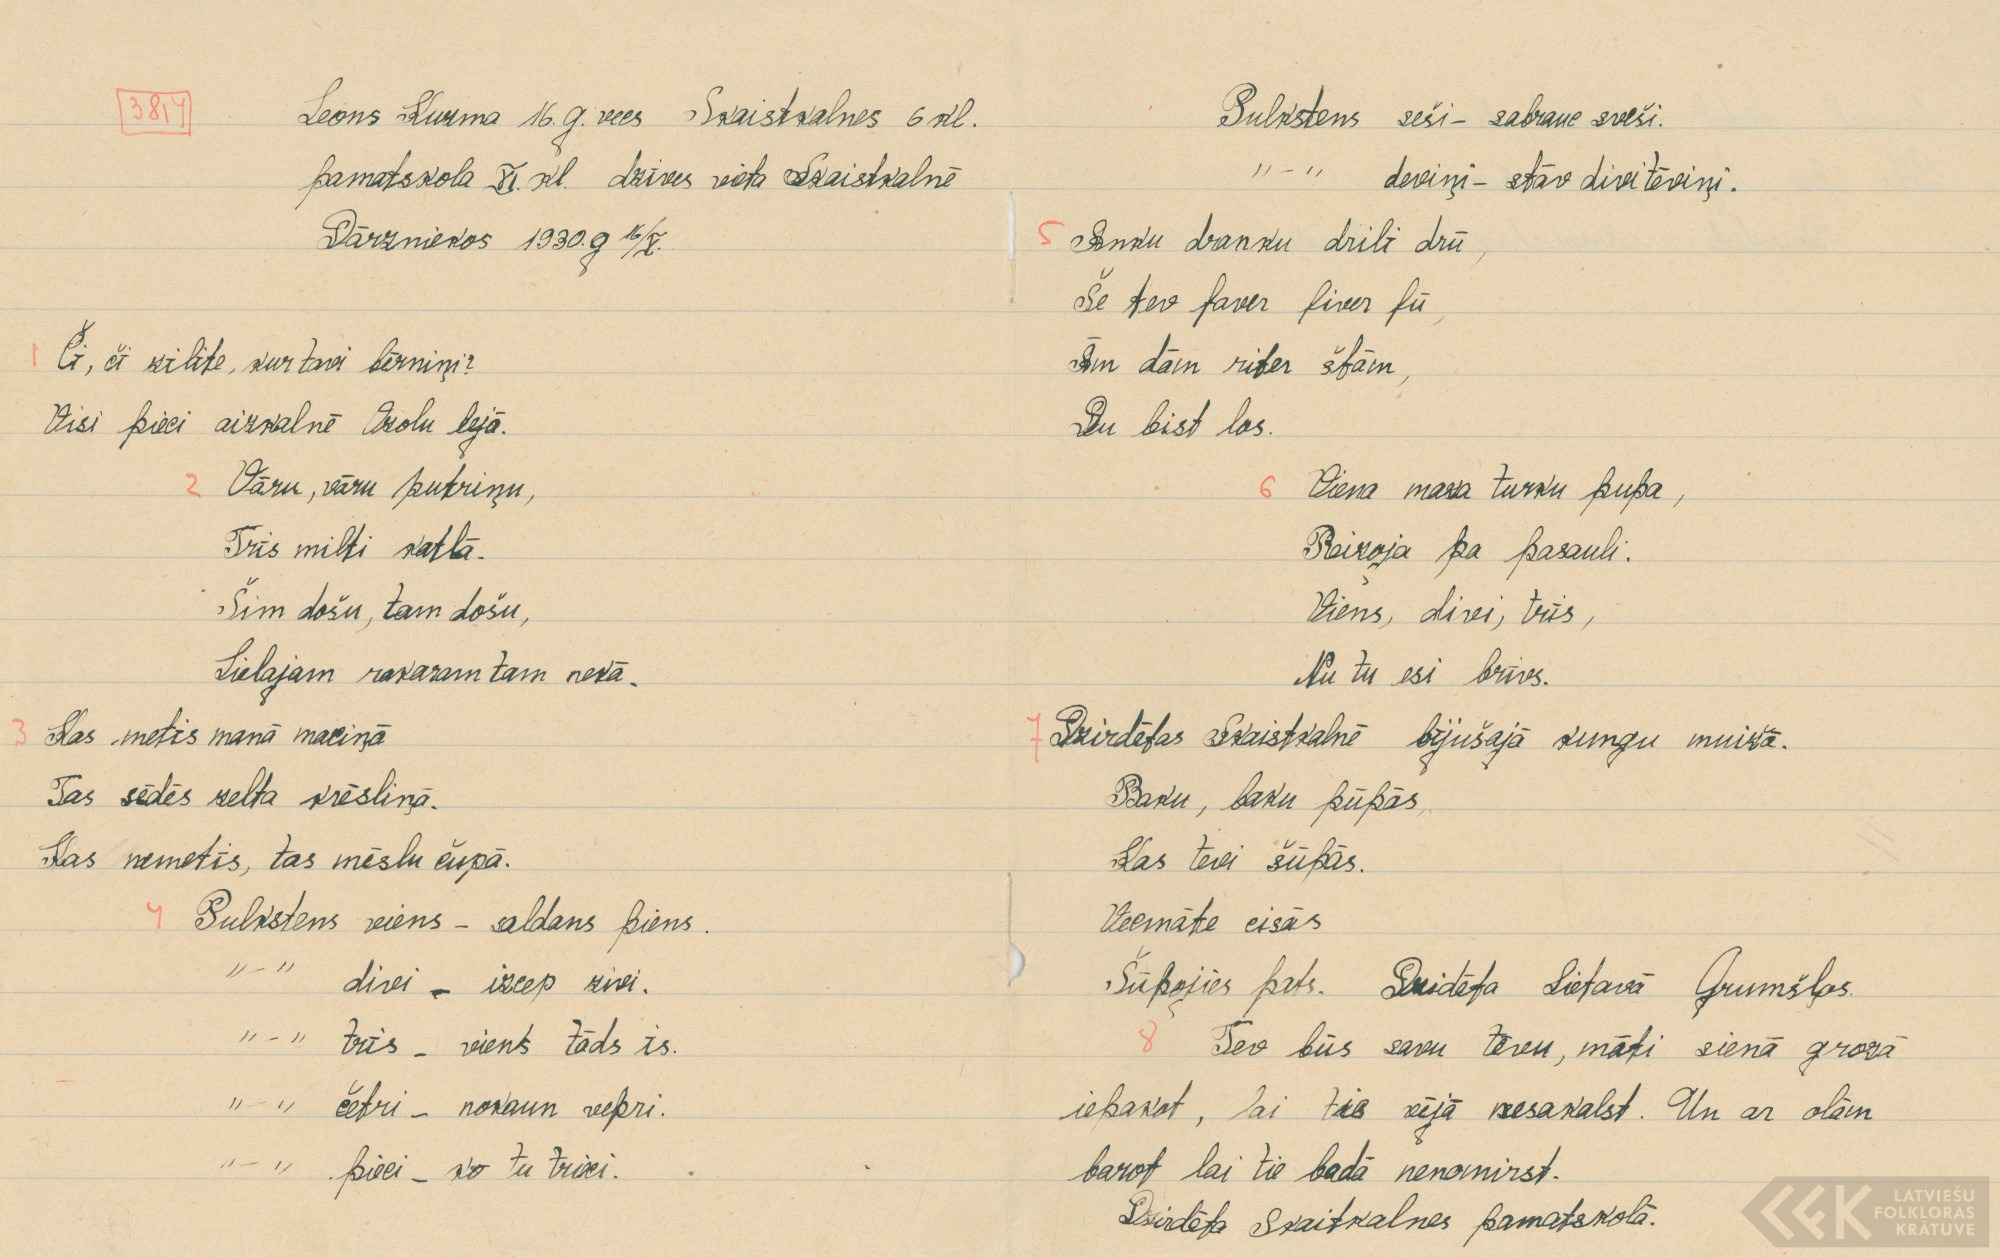 3814
Leons Kuzma 16. g. vecs Skaistkalnes 6 kl.
pamatskola VI. kl. dzīves vieta Skaistkalnē
Dārzniekos 1930. g 16/X.
1 Či, či zilīte, kur tavi bērniņi?
Visi pieci aizkalnē Ozolu lejā.
2 Vāru, vāru putriņu,
Trīs milti katlā.
Šim došu, tam došu,
Lielajam rakaram tam nekā.
3 Kas metīs manā maciņā
Tas sēdēs zelta krēsliņā.
Kas nemetīs, tas mēslu čupā.
4 Pulkstens viens – saldans piens.
"-" divi – izcep zivi.
"-" trīs – viens tāds īs.
"-" četri – nokaun vepri.
"-" pieci – ko tu trieci.
Pulkstens seši – sabrauc sveši.
"-" deviņi – stāv divi tēviņi.
5 Anku dranku drili drū,
Še tev faver fiver fū,
Ām dām riter štām,
Du bist los.
6 Viena maza turku pupa,
Reizoja pa pasauli.
Viens, divi, trīs,
Nu tu esi brīvs.
7 Dzirdētas Skaistkalnē bijušajā kungu muižā.
Baku, baku pūpās,
Kas tevi šūpās.
Vecmāte cisās
Šūpojies pats. Dzidēta Lietavā Grumšļos.
8 Tev būs savu tēvu, māti sienā grozā
iepakot, lai tie vējā nesakalst. Un ar olām
barot lai tie badā nenomirst.
Dzirdēta Skaitkalnes pamatskolā.
LATVIEŠU
FOLKLORAS
KRĀTUVE